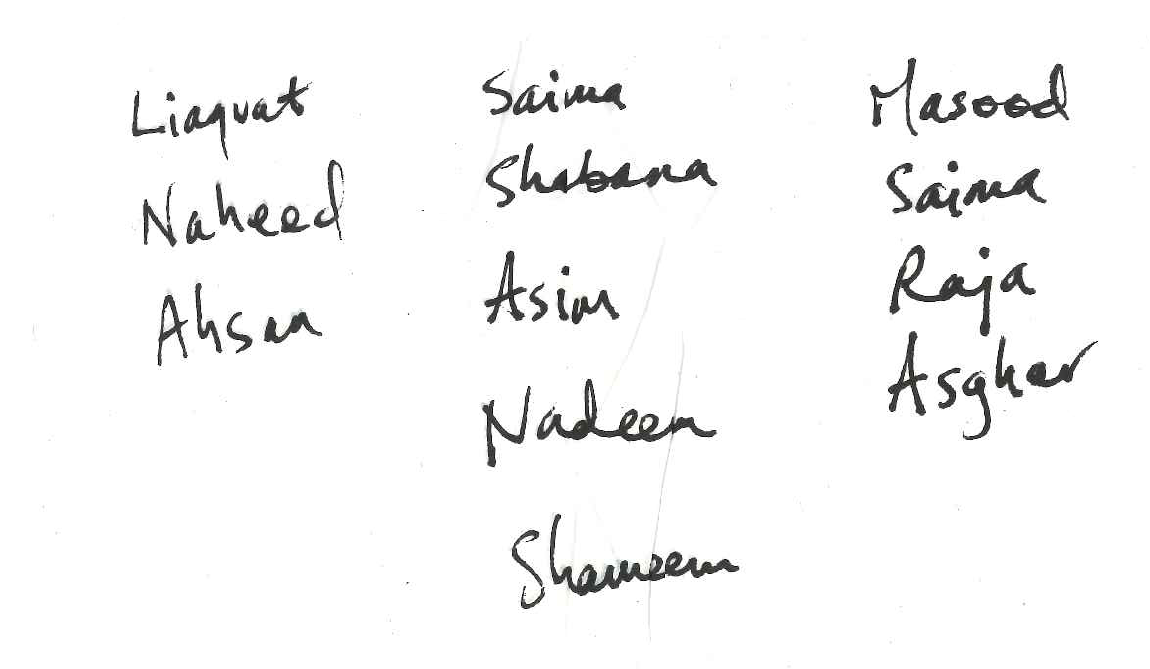 Liaquat
Naheed
Ahsan
Saima
Shabana
Asim
Nadeem
Shameem
Masood
Saima
Raja
Asghar